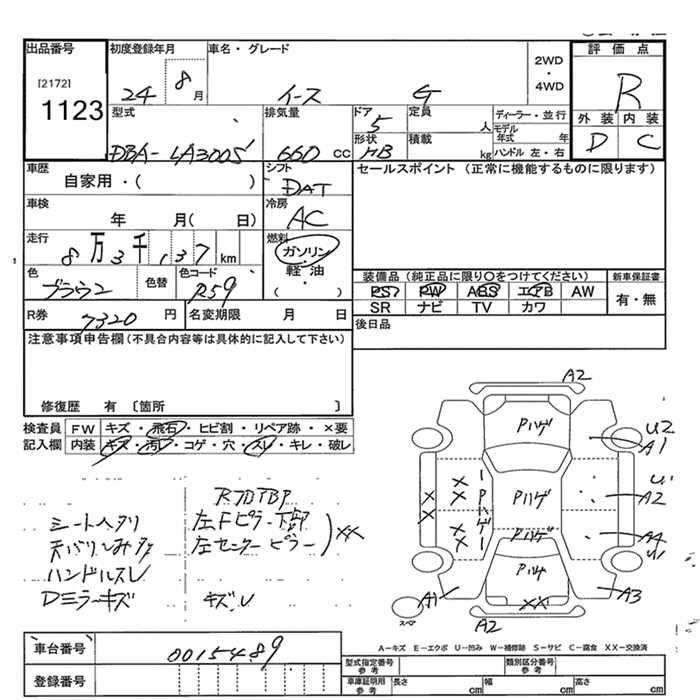 出品番号
[2172]
1123
初度登録年月
24 8 月
車名・グレード
イース G
2WD
・
4WD
評価点
R
外装 内装
D C
型式
DBA-LA300S
排気量
660 cc
ドア 5
形状 HB
定員 人
積載 kg
ディーラー・並行
モデル年式 年
ハンドル 左・右
車歴
自家用・( )
シフト
DAT
セールスポイント (正常に機能するものに限ります)
車検
年 月( 日)
冷房
AC
走行
8万3千137km
燃料
ガソリン
・
軽・油
・
( )
色
ブラウン
色替
色コード
R59
装備品(純正品に限り○をつけてください)
新車保証書
PS PW ABS エアB AW
有・無
SR ナビ TV カワ
R券 7320 円
名変期限 月 日
後日品
注意事項申告欄(不具合内容等は具体的に記入して下さい)
修復歴 有〔箇所 〕
検査員記入欄
FW キズ・飛石・ヒビ割・リペア跡・×要
内装 キズ・汚レ・コゲ・穴・スレ・キレ・破レ
シートヘタリ
天バリしみ
ハンドルスレ
Dミラーキズ
左Fピラー下部
左センターピラー
XX
キズ、U
A2
Pハゲ
U2
A1
Pハゲ
Pハゲ
U1
A2
Pハゲ
A4
U1
Pハゲ
A1
A3
XX
A2
スペア
A-キズ E-エクボ U-凹み W-補修跡 S-サビ C-腐食 XX-交換済
車台番号
0015489
登録番号
型式指定番号
参考
類別区分番号
参考
車庫証明用
参考
長さ cm
幅 cm
高さ cm